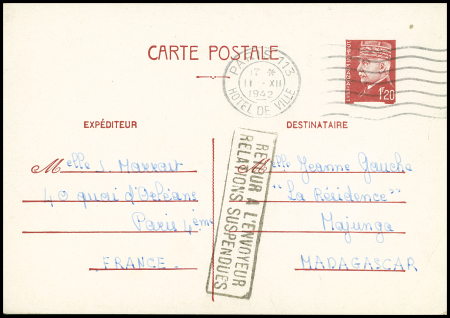 CARTE POSTALE
PARIS 113
17 H
11 - XII
1942
HÔTEL DE VILLE
1f20
EXPÉDITEUR
Melle J. Marrast
40 quai d'Orléans
Paris 4ème
FRANCE
RETOUR A L'ENVOYEUR
RELATIONS SUSPENDUES
DESTINATAIRE
Melle Jeanne Gauche
"La Résidence"
Majunga
MADAGASCAR